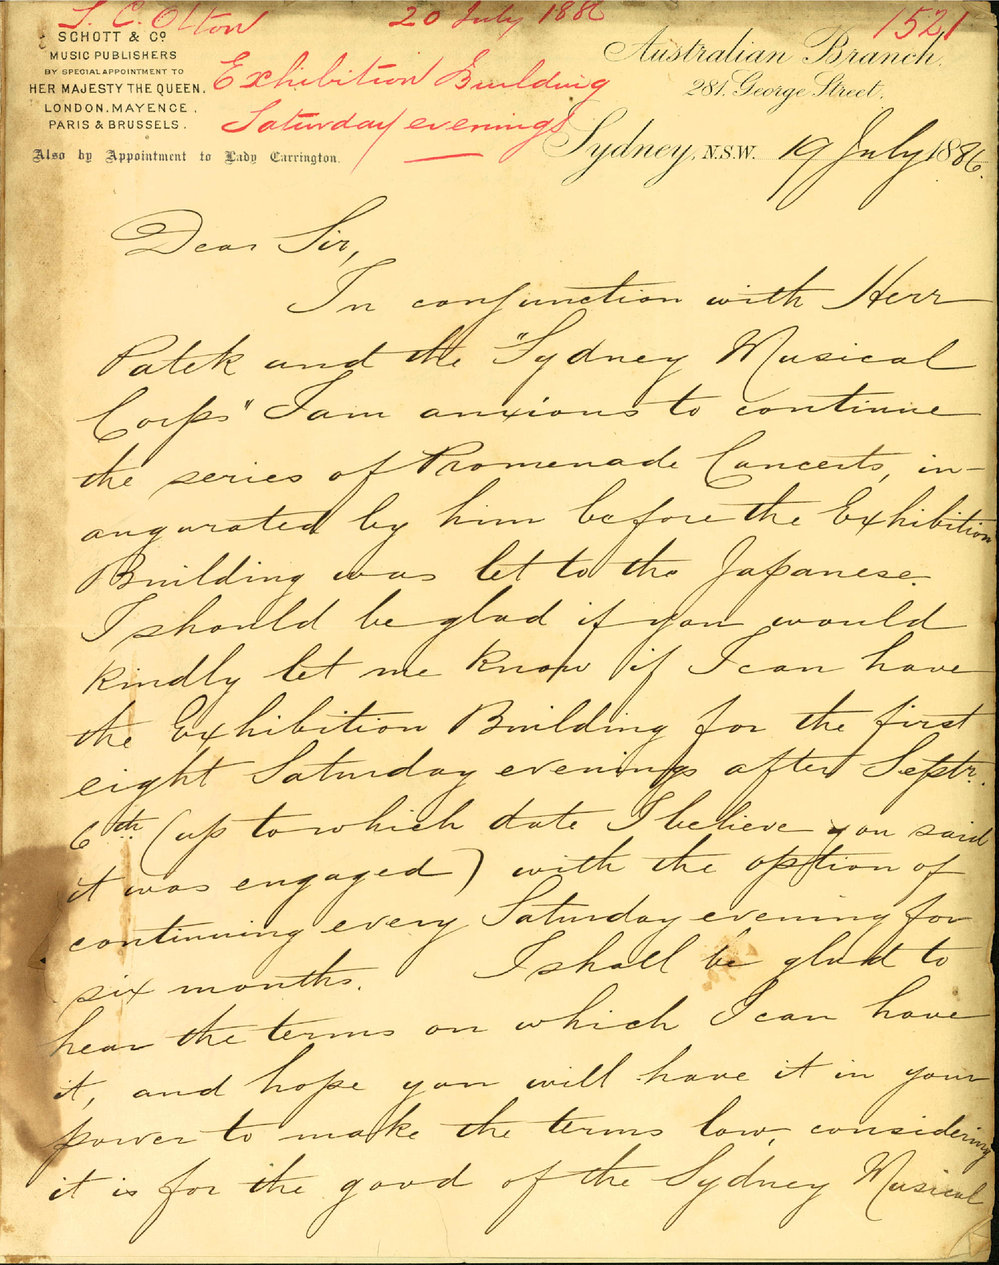 S. C. Otton 20 July 1886 1521
Exhibition Building
Saturday evenings
SCHOTT & Co
MUSIC PUBLISHERS
BY SPECIAL APPOINTMENT TO
HER MAJESTY THE QUEEN.
LONDON. MAYENCE.
PARIS & BRUSSELS.
Also by Appointment to Lady Carrington.
Australian Branch.
281. George Street.
Sydney, N.S.W. 19 July 1886.
Dear Sir,
In conjunction with Herr
Patek and the "Sydney Musical
Corps" I am anxious to continue
the series of Promenade Concerts, in-
augurated by him before the Exhibition
Building was let to the Japanese.
I should be glad if you would
kindly let me know if I can have
the Exhibition Building for the first
eight Saturday evenings after Septr.
6th (up to which date I believe you said
it was engaged) with the option of
continuing every Saturday evening for
six months. I shall be glad to
hear the terms on which I can have
it, and hope you will have it in your
power to make the terms low, considering
it is for the good of the Sydney Musical